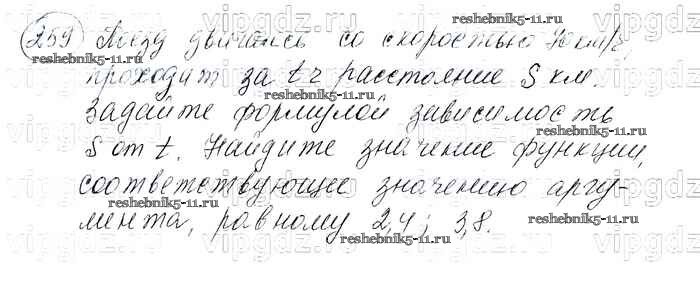 259 Поезд двигаясь со скоростью 70 км/ч,
проходит за t ч расстояние S км.
Задайте формулой зависимость
S от t. Найдите значение функции,
соответствующее значению аргу-
мента, равному 2,4; 3,8.
reshebnik5-11.ru
reshebnik5-11.ru
reshebnik5-11.ru
reshebnik5-11.ru
reshebnik5-11.ru
reshebnik5-11.ru
reshebnik5-11.ru